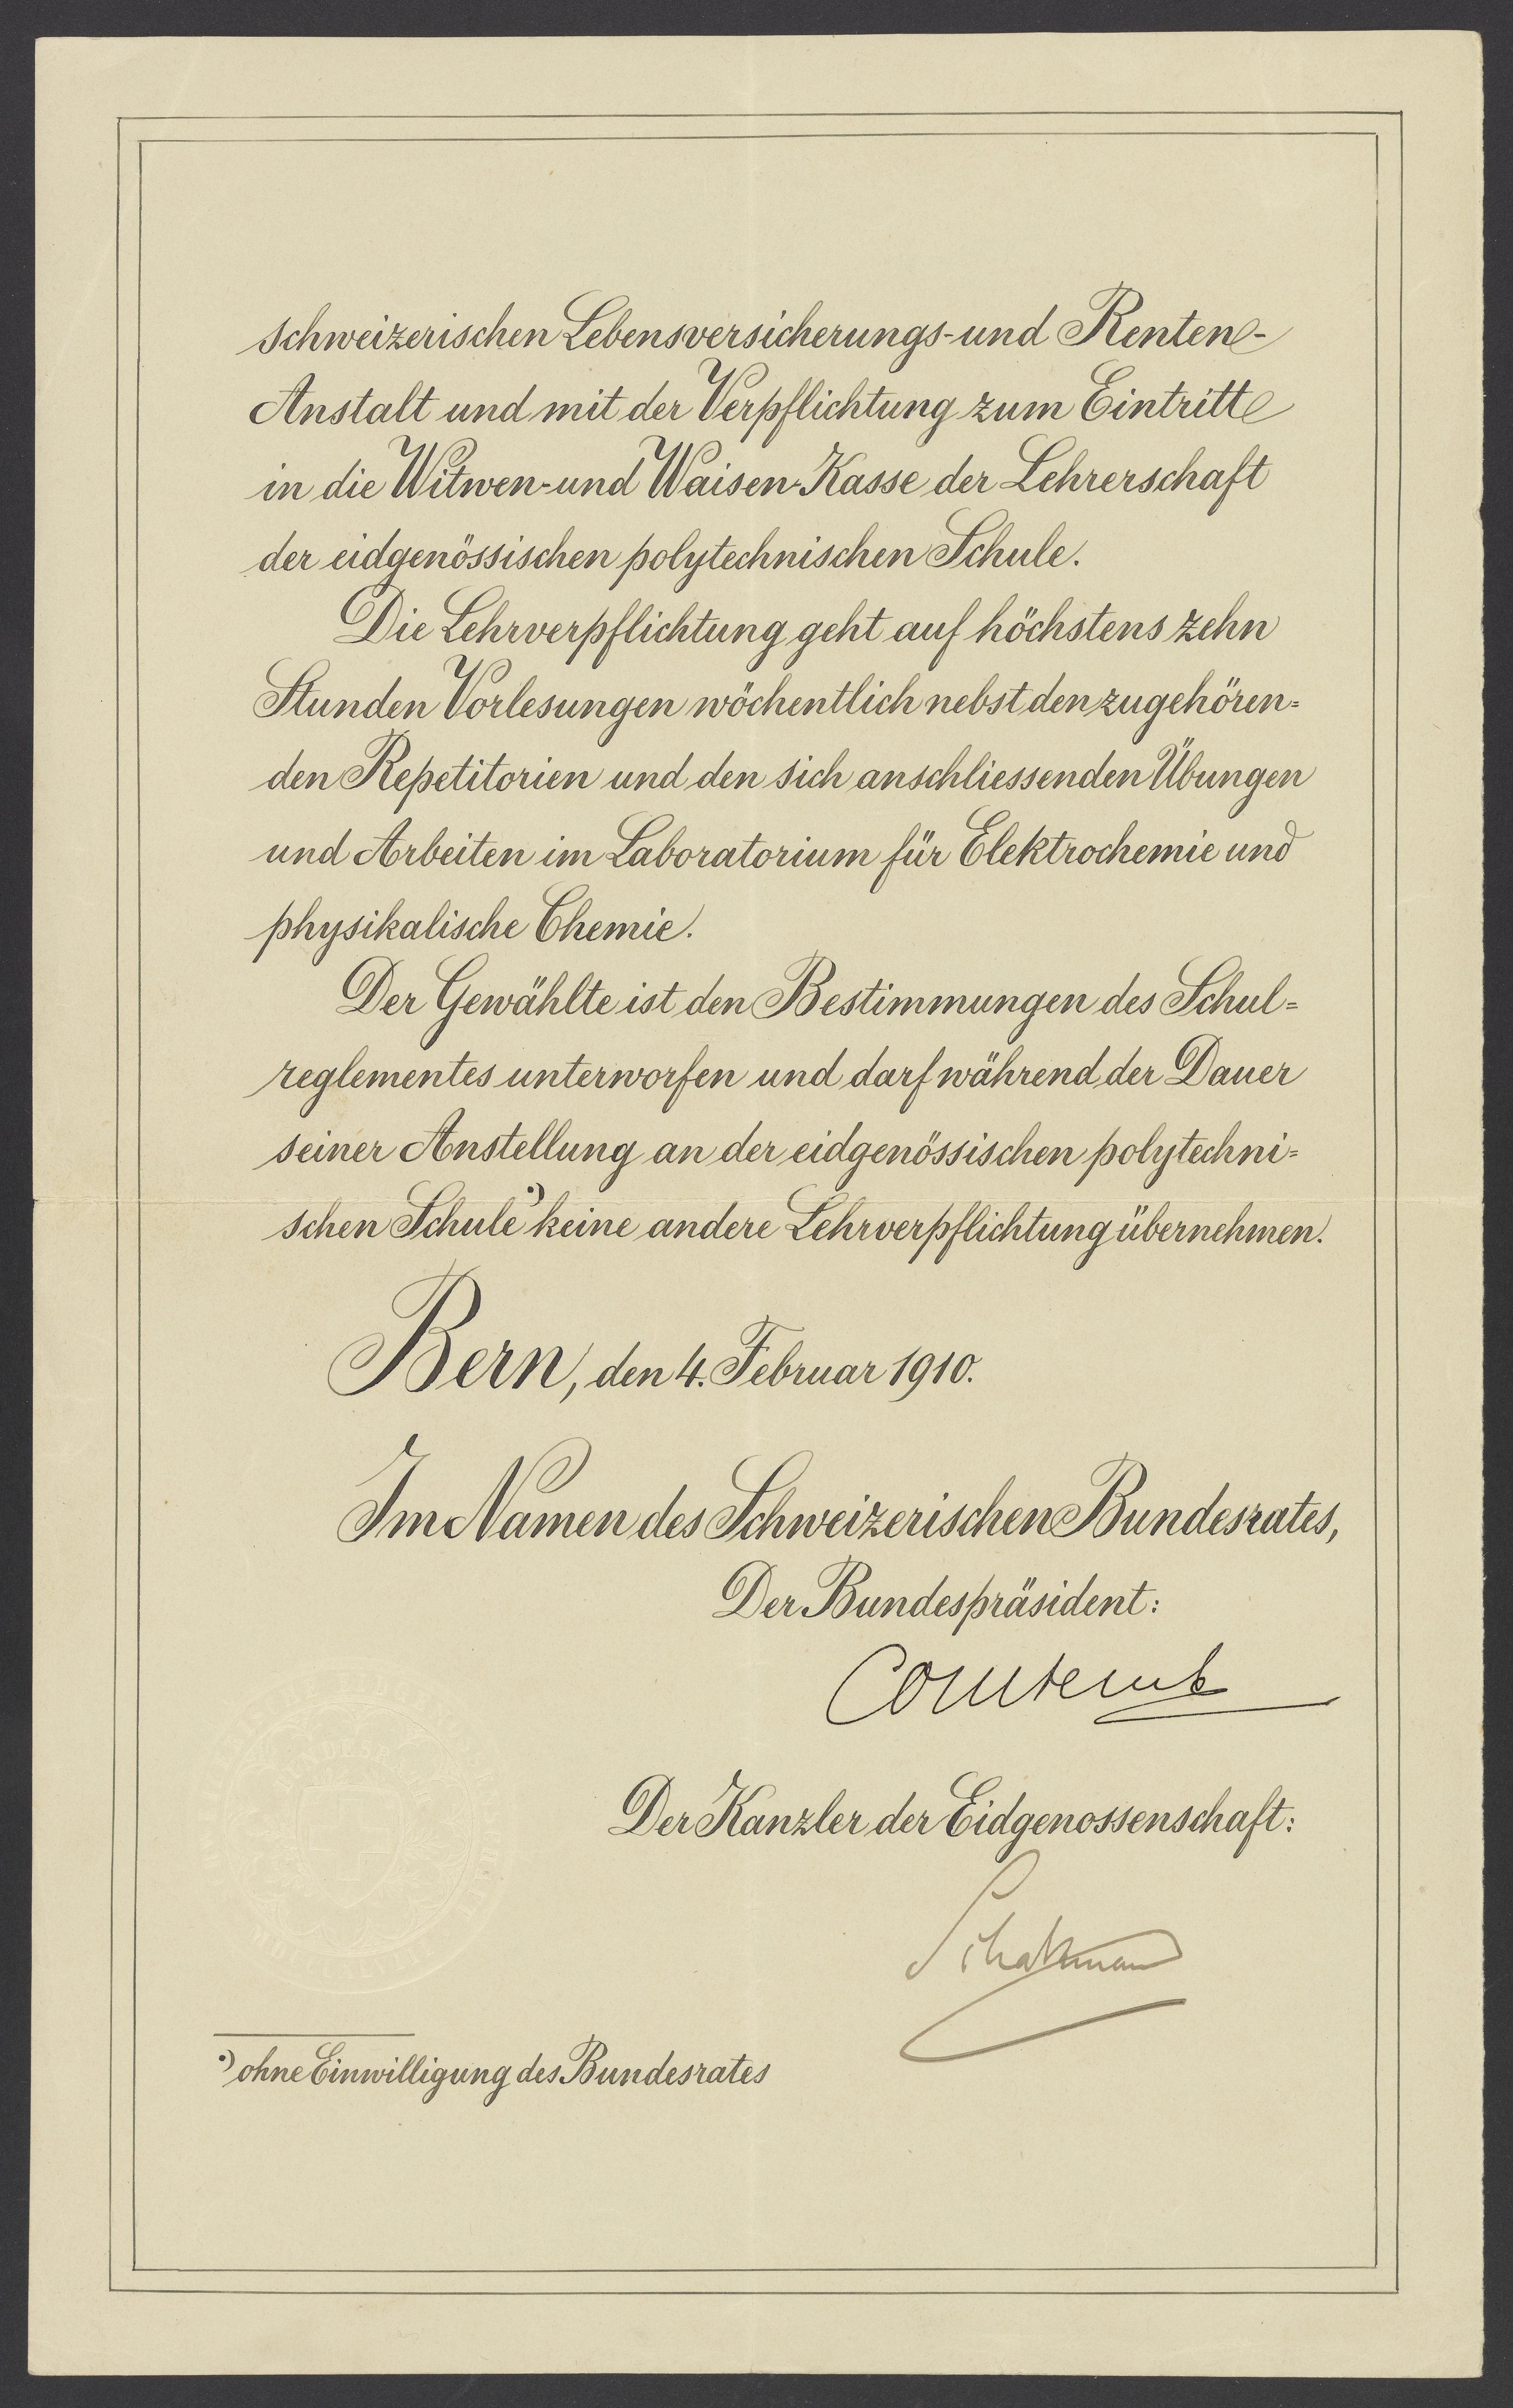 schweizerischen Lebensversicherungs- und Renten-
Anstalt und mit der Verpflichtung zum Eintritte
in die Witwen- und Waisen-Kasse der Lehrerschaft
der eidgenössischen polytechnischen Schule.
Die Lehrverpflichtung geht auf höchstens zehn
Stunden Vorlesungen wöchentlich nebst den zugehören=
den Repetitorien und den sich anschliessenden Übungen
und Arbeiten im Laboratorium für Elektrochemie und
physikalische Chemie.
Der Gewählte ist den Bestimmungen des Schul=
reglementes unterworfen und darf während der Dauer
seiner Anstellung an der eidgenössischen polytechni=
schen Schule *) keine andere Lehrverpflichtung übernehmen.
Bern, den 4. Februar 1910.
Im Namen des Schweizerischen Bundesrates,
Der Bundespräsident:
Comtesse
Der Kanzler der Eidgenossenschaft:
Schatzmann
*) ohne Einwilligung des Bundesrates